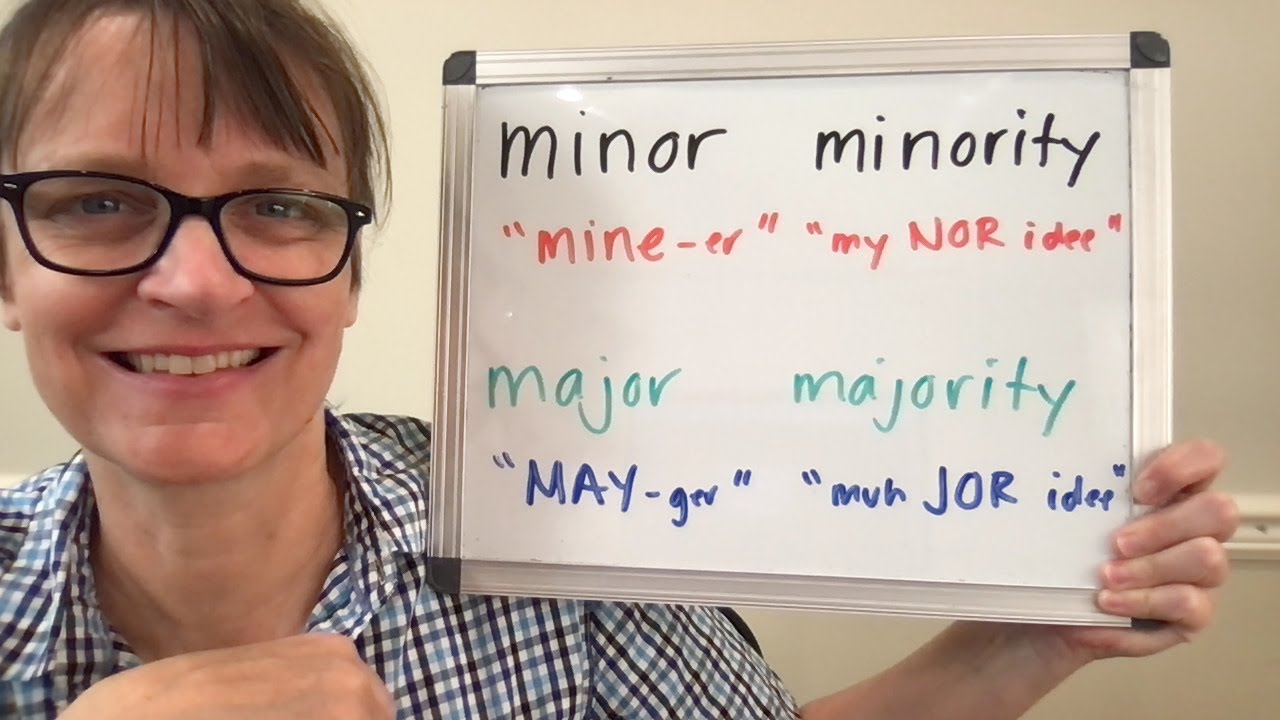 minor minority
"mine-er" "my NOR idee"
major majority
"MAY-ger" "muh JOR idee"